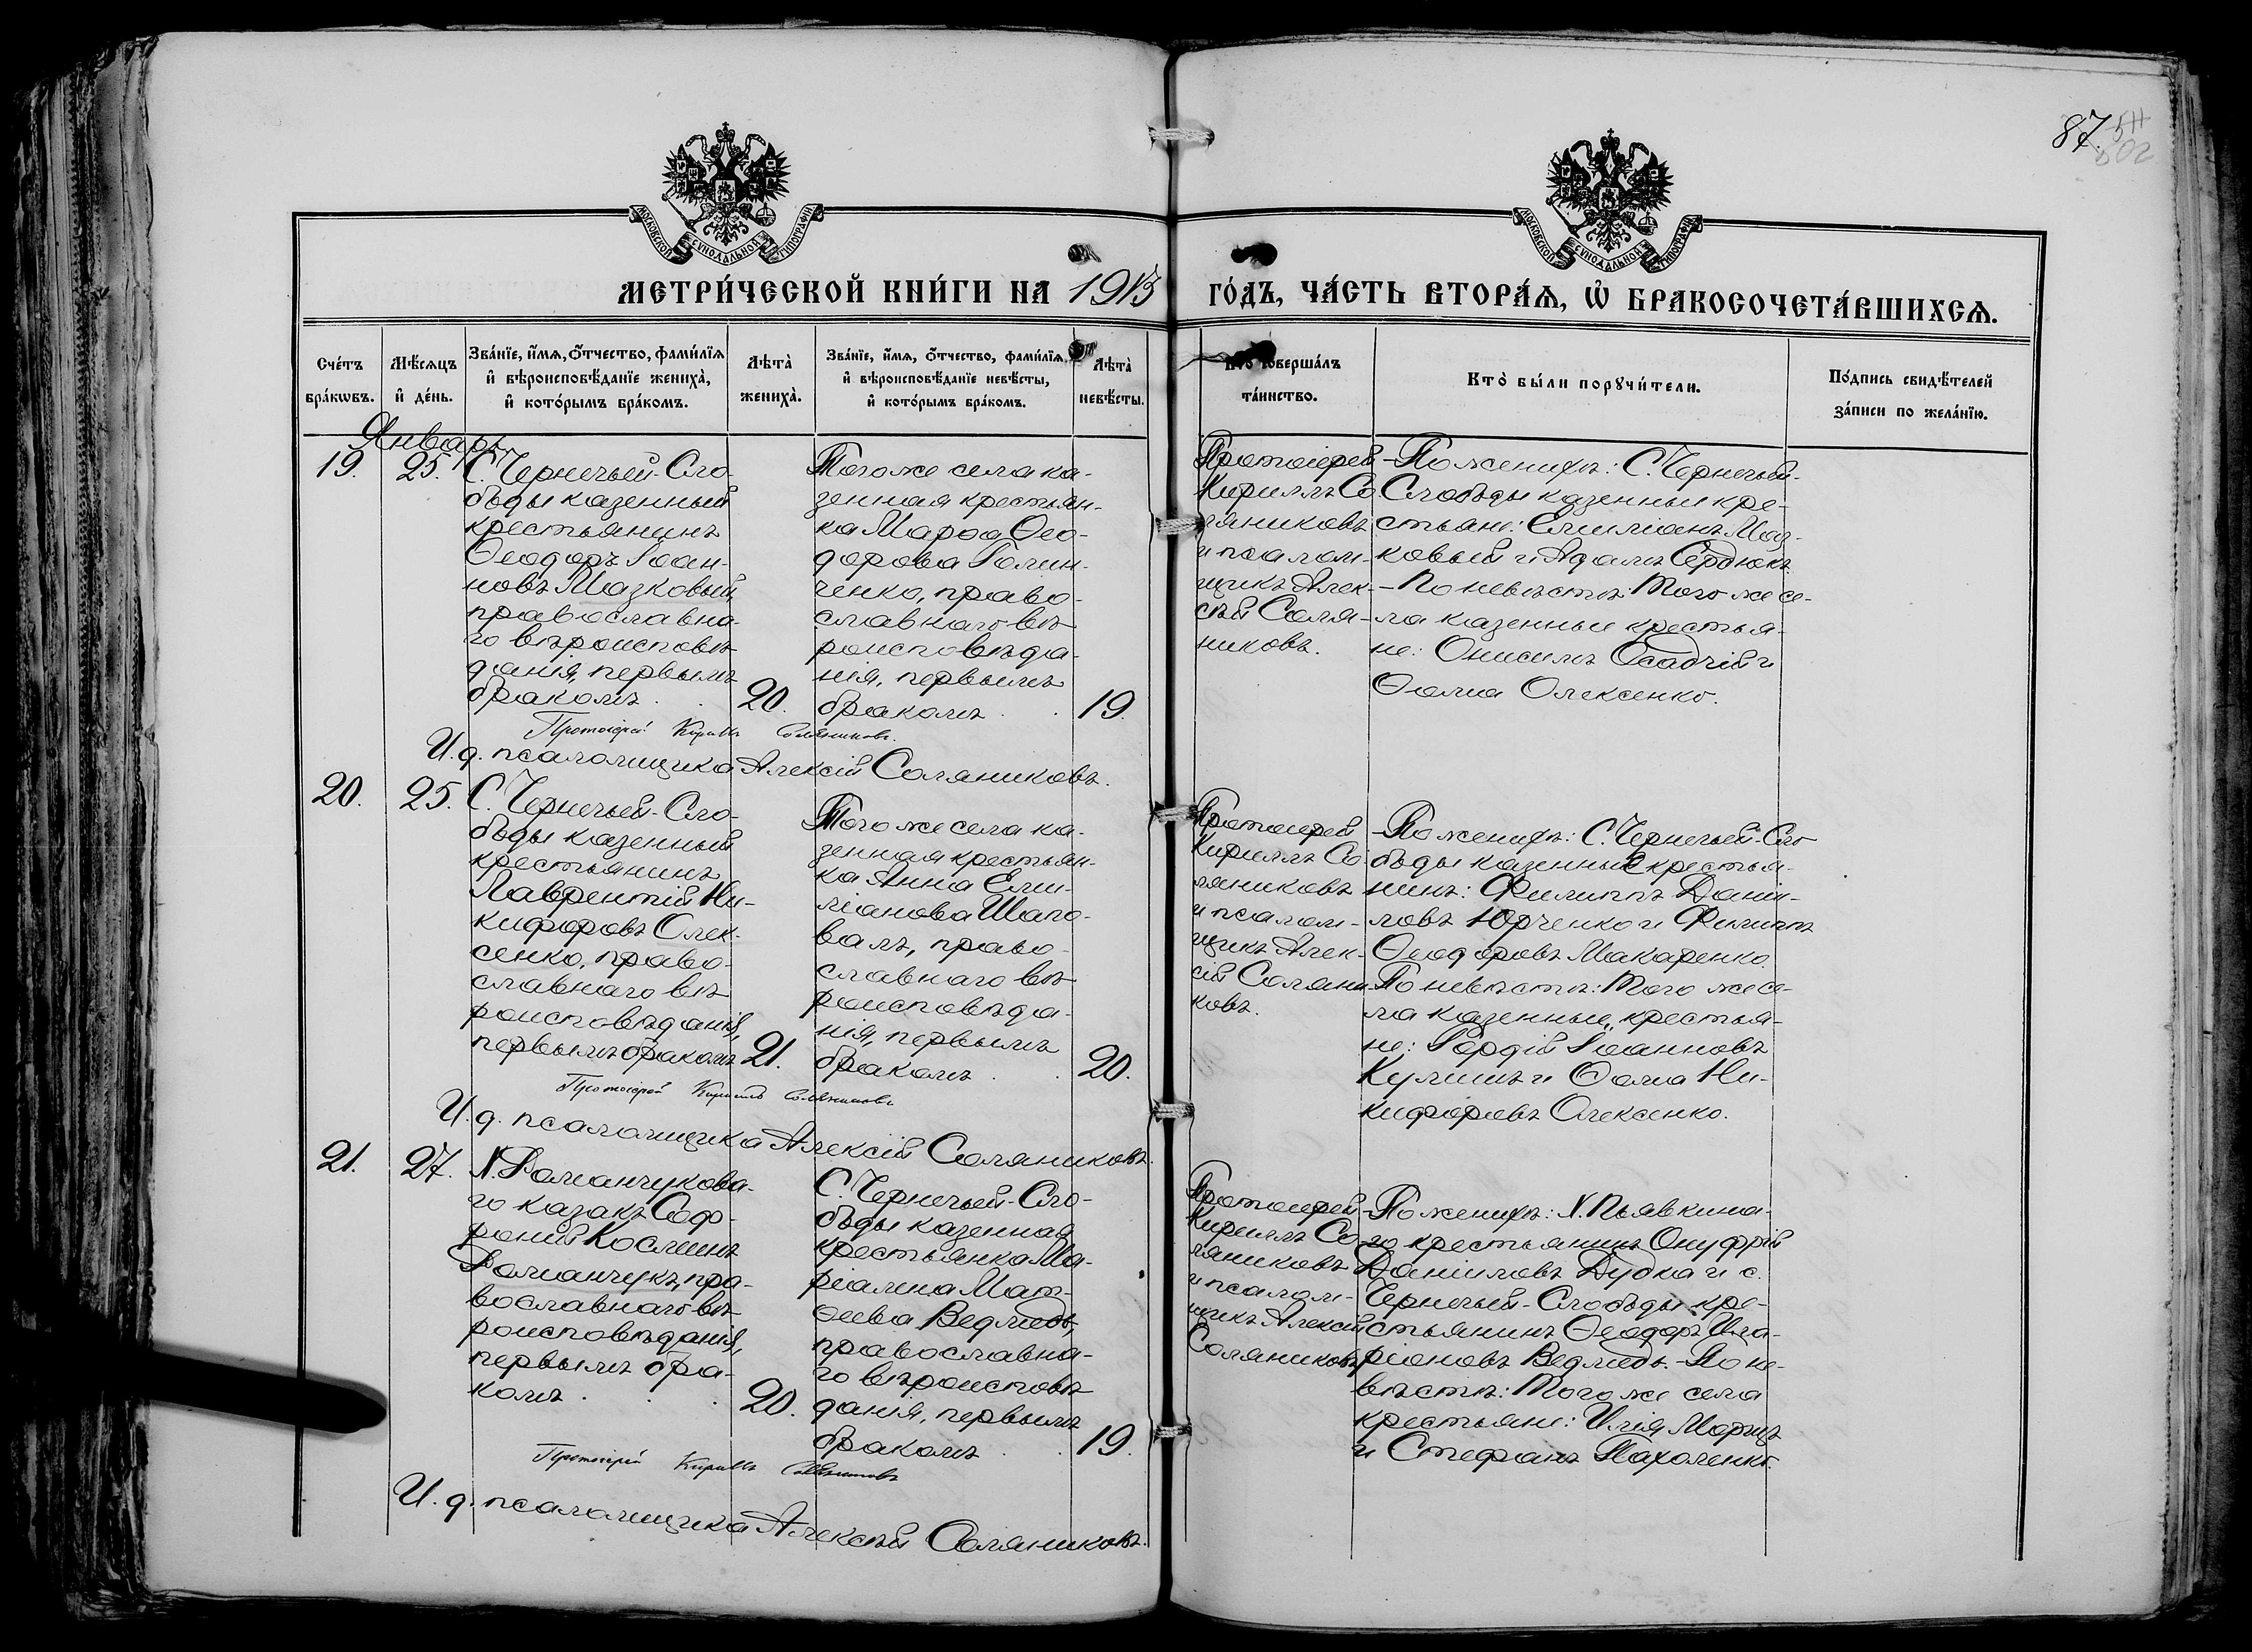 87.
502
МОСКОВСКОЙ СѴНОДАЛЬНОЙ ТИПОГРАФІИ
МОСКОВСКОЙ СѴНОДАЛЬНОЙ ТИПОГРАФІИ
МЕТРИ́ЧЕСКОЙ КНИ́ГИ НА 1913 ГО́ДЪ, ЧА́СТЬ ВТОРА́Ѧ, Ѡ҆ БРАКОСОЧЕТА́ВШИХСѦ.
Сче́тъ
бра́кѡвъ.
Мѣ́сѧцъ
и҆ де́нь.
Зва́нїе, и҆́мѧ, ѻ҆́тчество, фами́лїѧ
и҆ вѣроисповѣ́данїе жениха̀,
и҆ кото́рымъ бра́комъ.
Лѣта̀
жениха̀.
Зва́нїе, и҆́мѧ, ѻ҆́тчество, фами́лїѧ
и҆ вѣроисповѣ́данїе невѣ́сты,
и҆ кото́рымъ бра́комъ.
Лѣта̀
невѣ́сты.
Кто̀ соверша́лъ
та́инство.
Кто̀ бы́ли порꙋчи́тели.
По́дпись свидѣ́телей
за́писи по жела́нїю.
Январь
19.
25.
С. Чернечьей-Сло-
боды казенный
крестьянинъ
Ѳеодоръ Іоан-
новъ Мазковый,
православна-
го вѣроисповѣ-
данія, первымъ
бракомъ . .
20.
Тогоже села ка-
зенная крестьян-
ка Марѳа Ѳео-
дорова Голин-
ченко, право-
славнаго вѣ-
роисповѣда-
нія, первымъ
бракомъ . .
19.
Протоіерей
Кириллъ Со-
ляниковъ
и псалом-
щикъ Алек-
сѣй Соля-
никовъ.
-По женихѣ: С. Чернечьей-
Слободы казенные кре-
стьяне: Емиліанъ Маз-
ковый и Адамъ Сердюкъ.
-По невѣстѣ: Того же се-
ла казенные крестья-
не: Онисимъ Осадчій и
Ѳома Олексенко.
Протоіерей Кириллъ Соляниковъ.
И. д. псаломщика Алексій Соляниковъ.
20.
25.
С. Чернечьей-Сло-
боды казенный
крестьянинъ
Лаврентій Ни-
кифоровъ Олек-
сенко, право-
славнаго вѣ-
роисповѣданія,
первымъ бракомъ
21.
Того же села ка-
зенная крестьян-
ка Анна Еми-
ліанова Шапо-
валъ, право-
славнаго вѣ-
роисповѣда-
нія, первымъ
бракомъ . .
20.
Протоіерей
Кириллъ Со-
ляниковъ
и псалом-
щикъ Алек-
сій Соляни-
ковъ.
-По женихѣ: С. Чернечьей-Сло-
боды казенный крестья-
нинъ: Филиппъ Даніи-
ловъ Юрченко и Филиппъ
Ѳеодоровъ Макаренко.
-По невѣстѣ: Того же се-
ла казенные крестья-
не: Гордій Іоанновъ
Кулишъ и Ѳома Ни-
кифоровъ Олексенко.
Протоіерей Кириллъ Соляниковъ
И. д. псаломщика Алексій Соляниковъ.
21.
27.
Х. Романчукова-
го казакъ Соф-
роній Косминъ
Романчукъ, пра-
вославнаго вѣ-
роисповѣданія,
первымъ бра-
комъ . . .
20.
С. Чернечьей-Сло-
боды казенная
крестьянка Ма-
ріамна Мат-
ѳеева Ведмедь,
православна-
го вѣроисповѣ-
данія, первымъ
бракомъ . .
19.
Протоіерей
Кириллъ Со-
ляниковъ
и псалом-
щикъ Алексій
Соляниковъ.
-По женихѣ: Х. Пьявкина-
го крестьянинъ Онуфрій
Даніиловъ Дудка и с.
Чернечьей-Слободы кре-
стьянинъ Ѳеодоръ Ила-
ріоновъ Ведмедь. -По не-
вѣстѣ: Того же села
крестьяне: Илія Морицъ
и Стефанъ Пахоленко.
Протоіерей Кириллъ Соляниковъ
И. д. псаломщика Алексѣй Соляниковъ.